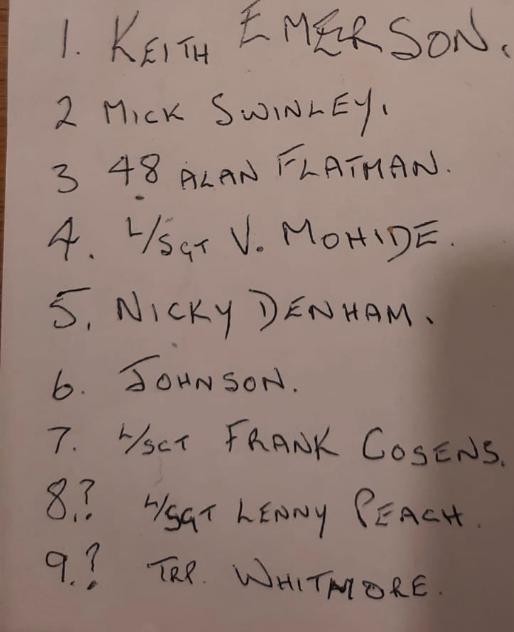 1. KEITH EMERSON.
2 MICK SWINLEY.
3 48 ALAN FLATMAN.
4. L/SGT V. MOHIDE.
5. NICKY DENHAM.
6. JOHNSON.
7. L/SGT FRANK COSENS.
8.? L/SGT LENNY PEACH.
9.? TRP. WHITMORE.